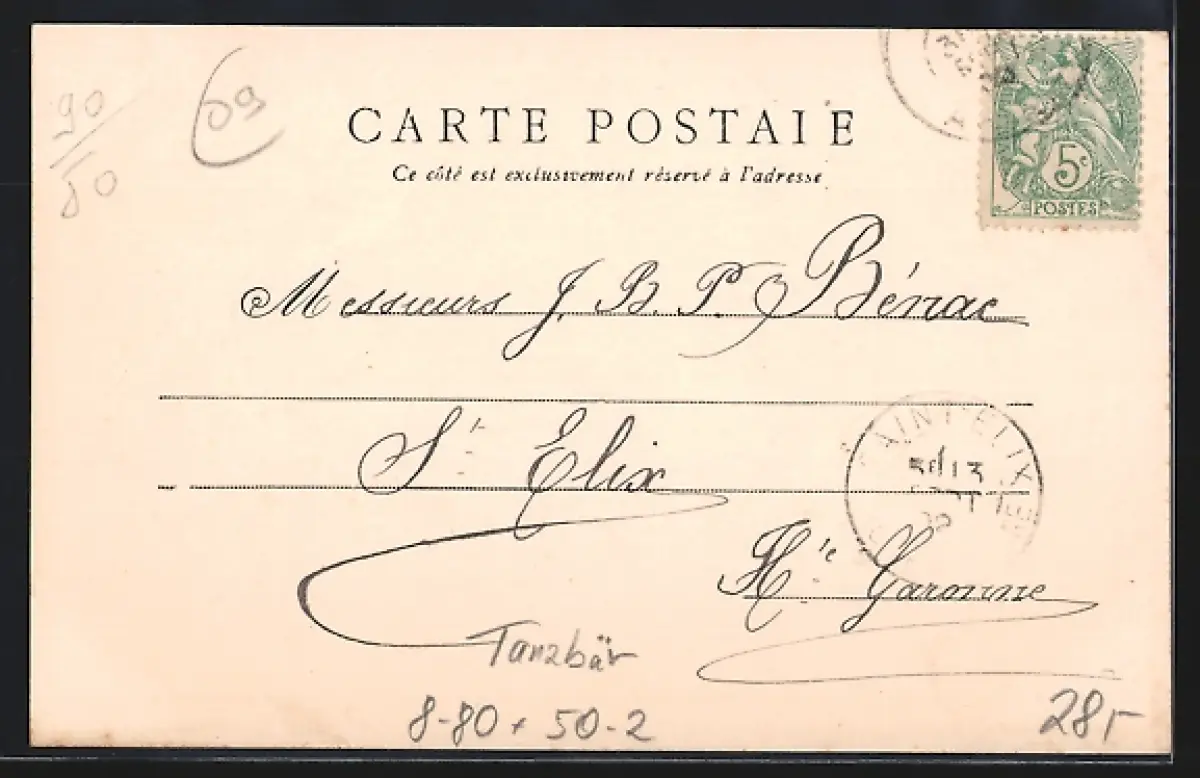 90/80
09
CARTE POSTALE
Ce côté est exclusivement réservé à l'adresse
5c
POSTES
Messieurs J. B. P. Bénac
St Elix
SAINT-ELIX
13
Hte Garonne
Tanzbär
8-80 + 50-2
28,-